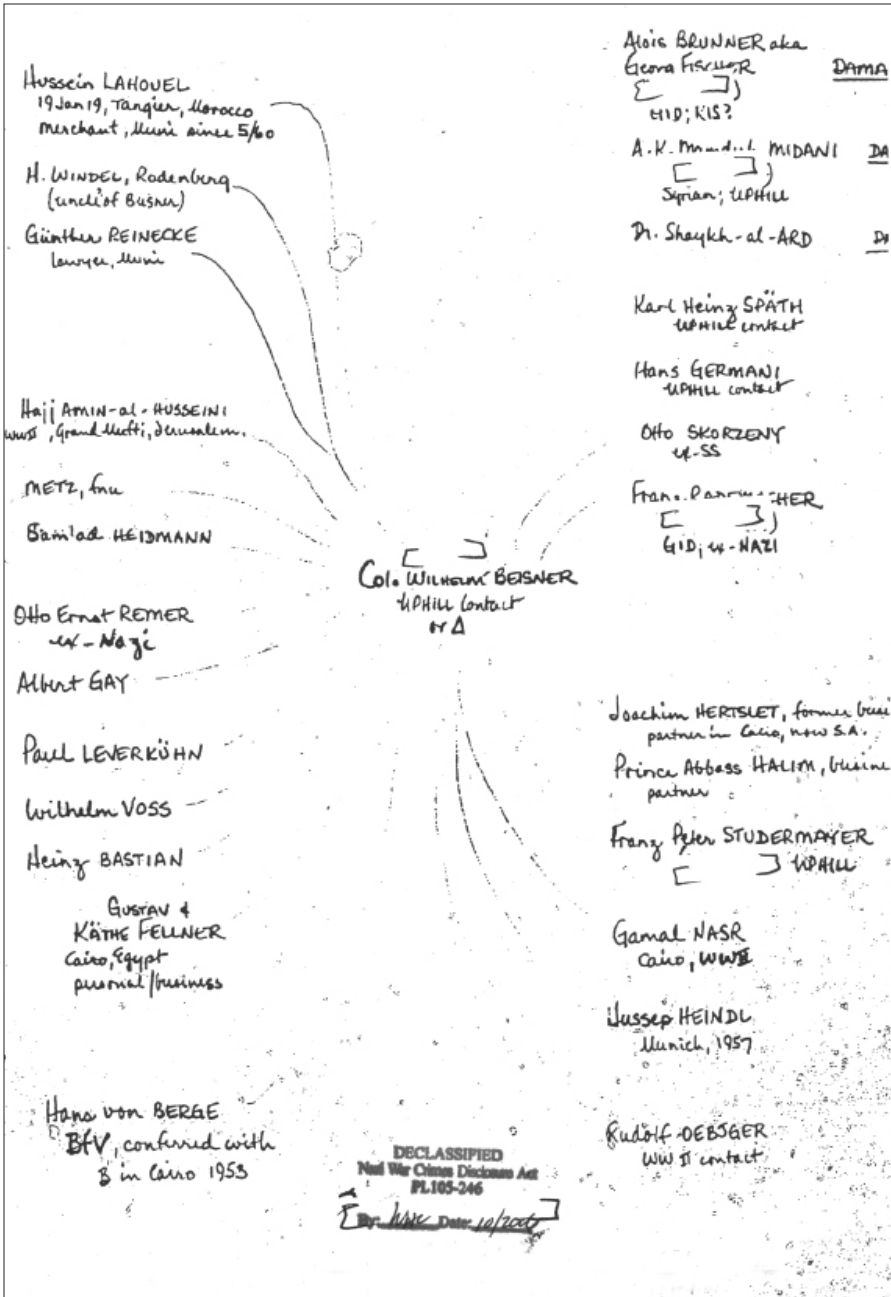 Hussein LAHOUEL
19 Jan 19, Tangier, Morocco
merchant, Muni since 5/60
H. WINDEL, Rodenberg
(uncle of Busner)
Günther REINECKE
lawyer, Muni
Hajj AMIN-al-HUSSEINI
WWII, Grand Mufti, Jerusalem.
METZ, fnu
HEIDMANN
Otto Ernst REMER
ex-Nazi
Albert GAY
Paul LEVERKÜHN
Wilhelm VOSS
Heinz BASTIAN
GUSTAV &
KÄTHE FELLNER
Cairo, Egypt
personal/business
Hans von BERGE
BfV, conferred with
B in Cairo 1953
Col. WILHELM BEISNER
UPHILL Contact
or Δ
DECLASSIFIED
Nazi War Crimes Disclosure Act
PL105-246
By: Date: 10/200
Alois BRUNNER aka
Georg FISCHER DAMA
GID; KIS?
A.K. MIDANI DA
Syrian; UPHILL
Dr. Shaykh-al-ARD
Karl Heinz SPÄTH
UPHILL contact
Hans GERMANI
UPHILL contact
Otto SKORZENY
ex-SS
HER
GID; ex-NAZI
Joachim HERTSLET, former busi
partner in Cairo, now S.A.
Prince Abbass HALIM, busine
partner
Franz Peter STUDERMAYER
UPHILL
Gamal NASR
Cairo, WWII
Jussep HEINDL
Munich, 1957
Rudolf OEBSGER
WW II contact